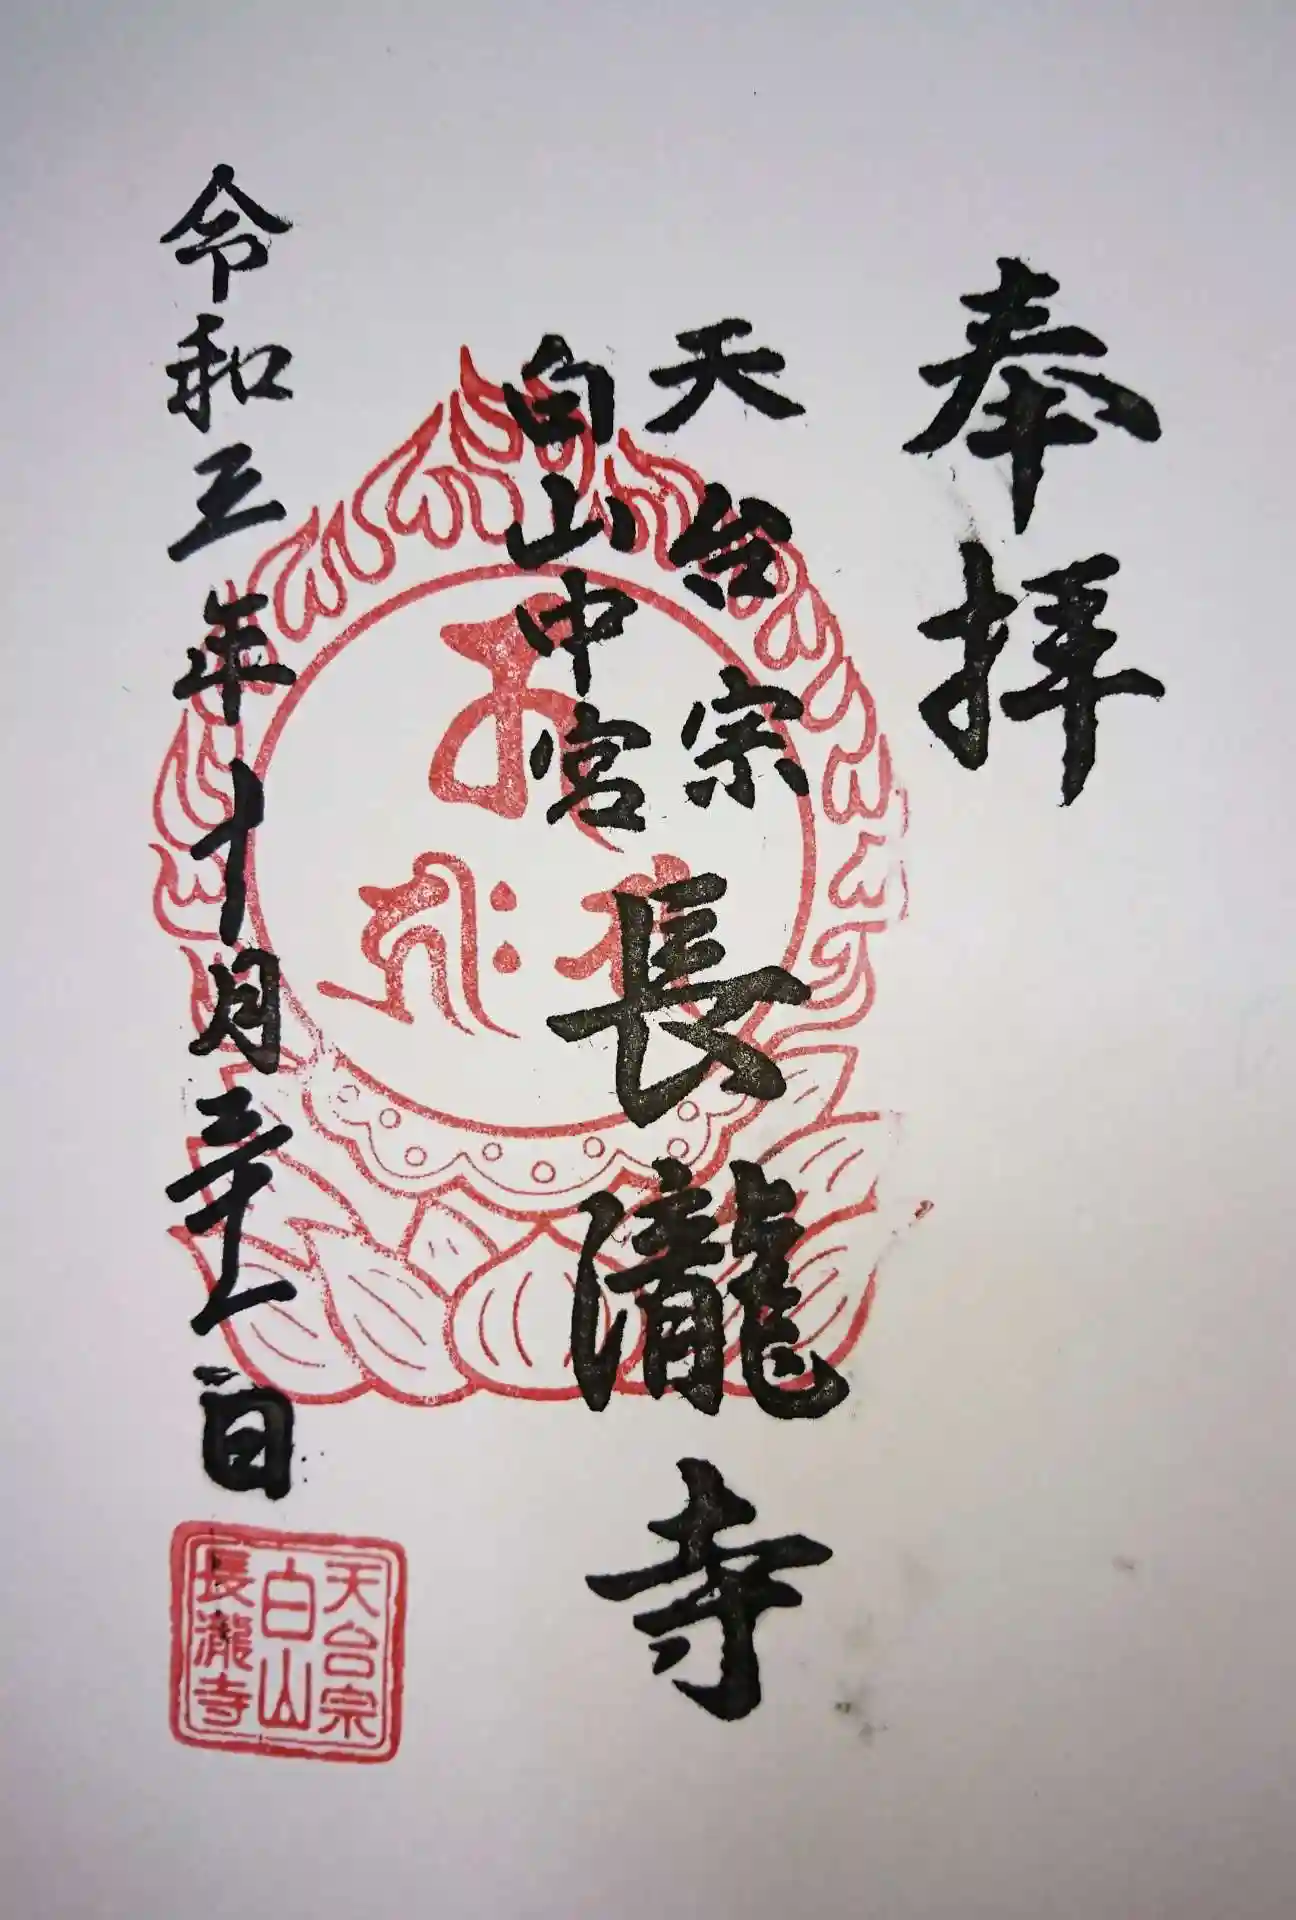 奉拝
天台宗
白山中宮
長瀧寺
令和五年十月三十一日
天台宗
白山
長瀧寺